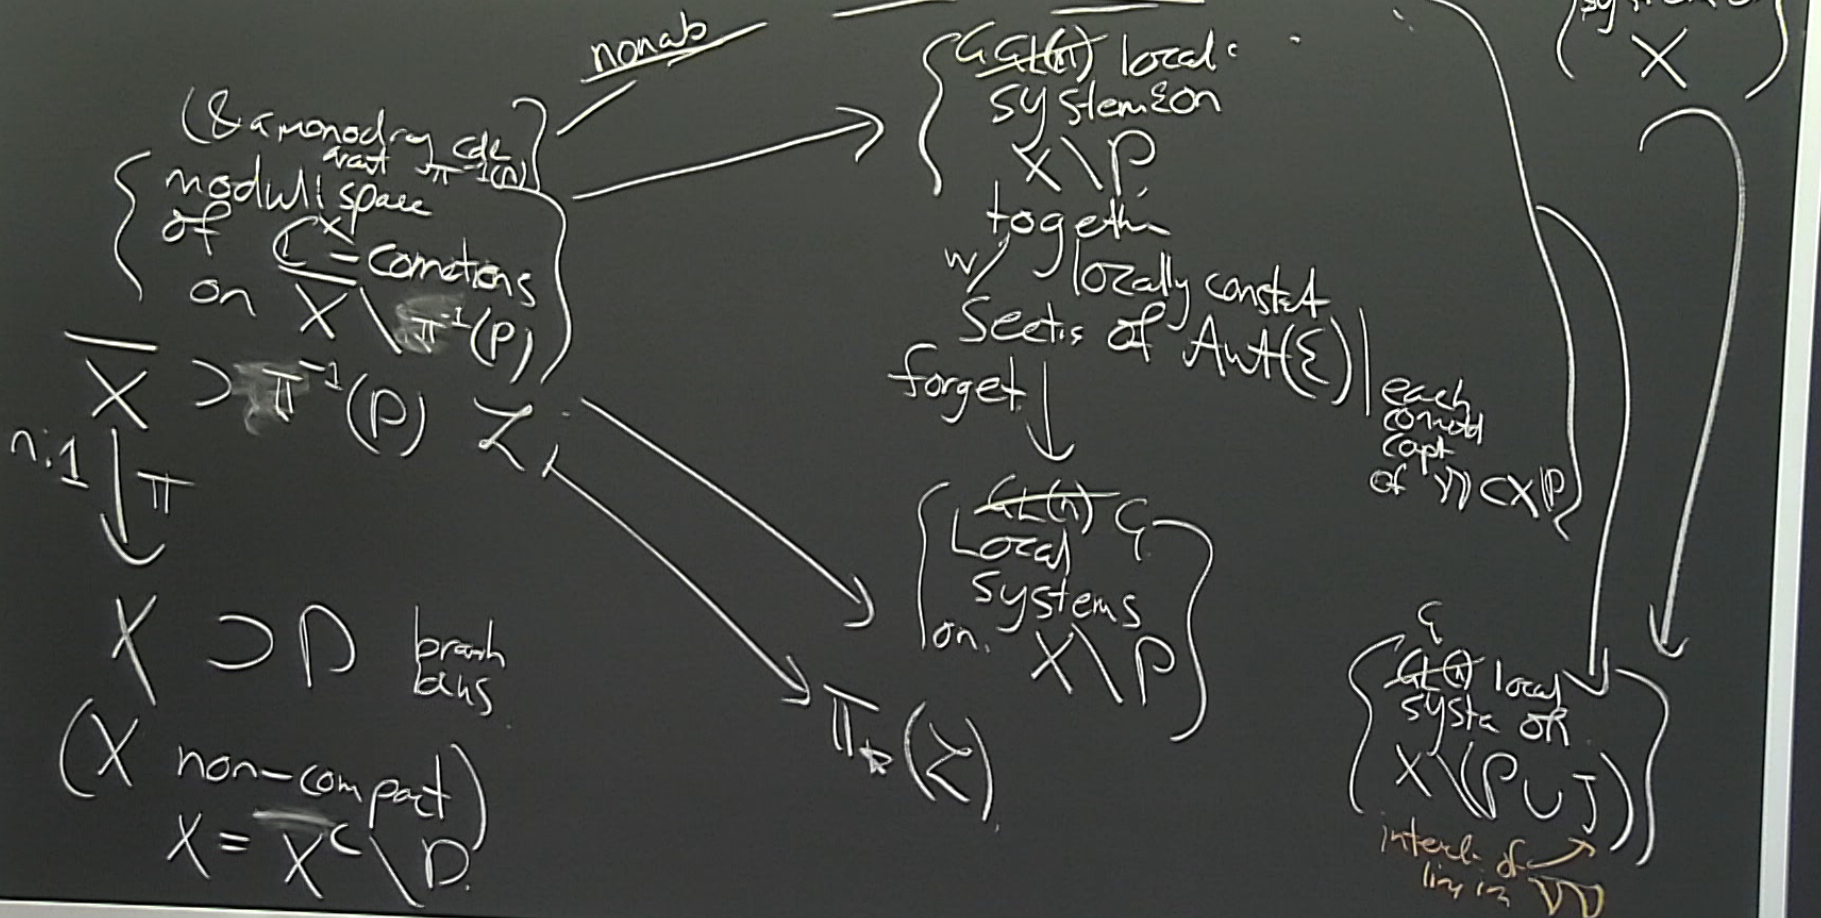 nonab
(& a monodromy cdt
arount π⁻¹(P)
moduli space
of C^x - connections
on X̄ \ π⁻¹(P)
X̄ ⊃ π⁻¹(P) L
n:1 ↓ π
X ⊃ P branch
(X non-compact)
X = X^c \ D.
G GL(n) local
system E on
X \ P
together
w/ locally constat
Sects of Aut(E) |
each
connctd
cpt
of W ⊂ X\P
forget
GL(n) G
Local
systems
on X \ P
π_*(L)
system
X
G
GL(n) local
syste on
X \ (P ∪ J)
intersec. of
lins in W